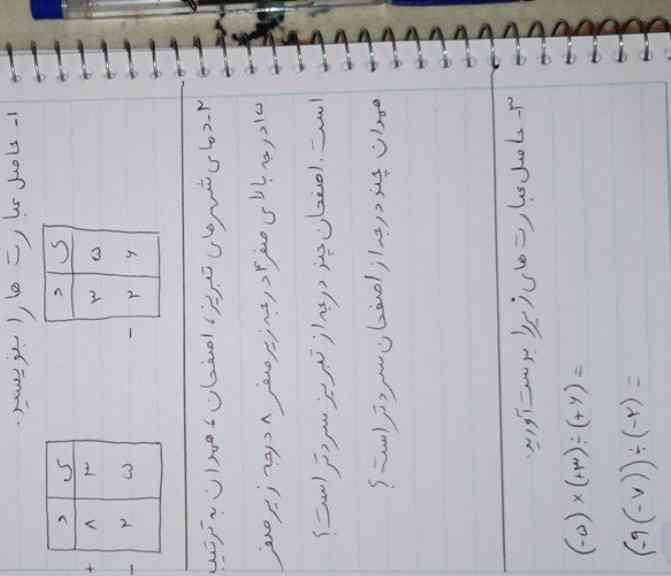 ۱- حاصل عبارت ها را بنویسید.
د ی
۳ ۵
۲ ۶
-
د ی
+ ۸ ۲
- ۲ ۵
۲- دمای شهرهای تبریز، اصفهان، همدان به ترتیب
۱۵ درجه بالای صفر ۳ درجه زیر صفر ۸ درجه زیر صفر
است. اصفهان چند درجه از تبریز سردتر است؟
همدان چند درجه از اصفهان سردتر است؟
۳- حاصل عبارت های زیر را بدست آورید.
(-۵) × (+۳) ÷ (+۶) =
(-۹ (-۷)) ÷ (-۲) =